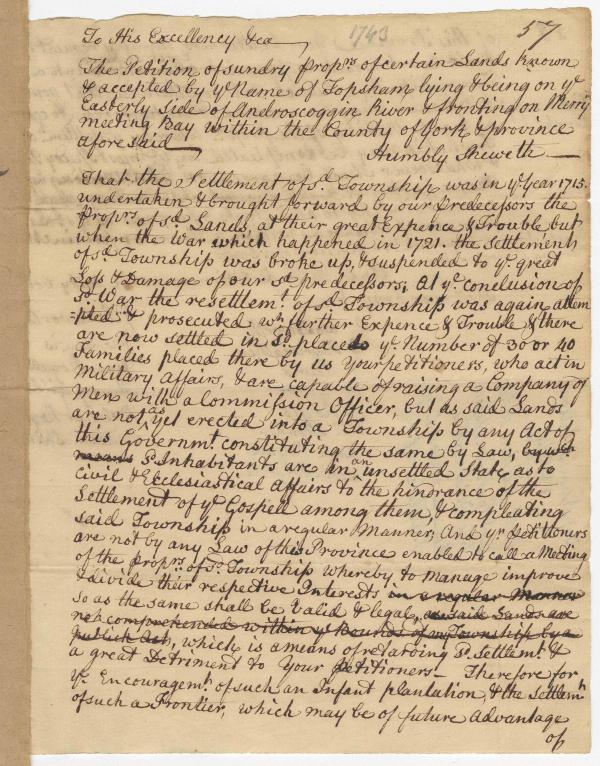 To His Excellency &ca 1743 57
The Petition of sundry Proprs of certain Lands known
& accepted by ye Name of Topsham lying & being on ye
Easterly side of Androscoggin River & fronting on Merry
meeting Bay within the County of York & province
aforesaid
Humbly Sheweth
That the Settlement of sd. Township was in ye Year 1715.
undertaken & brought forward by our Predecessors the
Proprs. of sd. Lands, at their great Expence & Trouble, but
when the War which happened in 1721. the settlement
of sd. Township was broke up, & suspended to ye. great
Loss & Damage of our sd. predecessors; At ye. conclusion of
sd. War the resettlemt. of sd. Township was again attem
=pted & prosecuted wh. further Expence & Trouble & there
are now settled in sd. place ye. Number of 30 or 40
Families placed there by us Your petitioners, who act in
Military affairs, & are capable of raising a Company of
Men with a Commission Officer, but as said Lands
are not as yet erected into a Township by any Act of
this Governmt. constituting the same by Law, by wch.
means sd. Inhabitants are in an unsettled State, as to
Civil & Ecclesiastical affairs to the hindrance of the
Settlement of ye. Gospell among them, & compleating
said Township in a regular Manner; And yr. petitioners
are not by any Law of this Province enabled to call a Meeting
of the Proprs. of sd. Township whereby to manage improve
& divide their respective Interests in a regular Manner
so as the same shall be Valid & legal, as said Lands are
not comprehended within ye Bounds of any Township by a
publick Act, which is a means of retarding sd. Settlemt. &
a great Detriment to Your Petitioners — Therefore for
ye. Encouragemt. of such an Infant plantation, & the Settlemt
of such a Frontier, which may be of future advantage
of